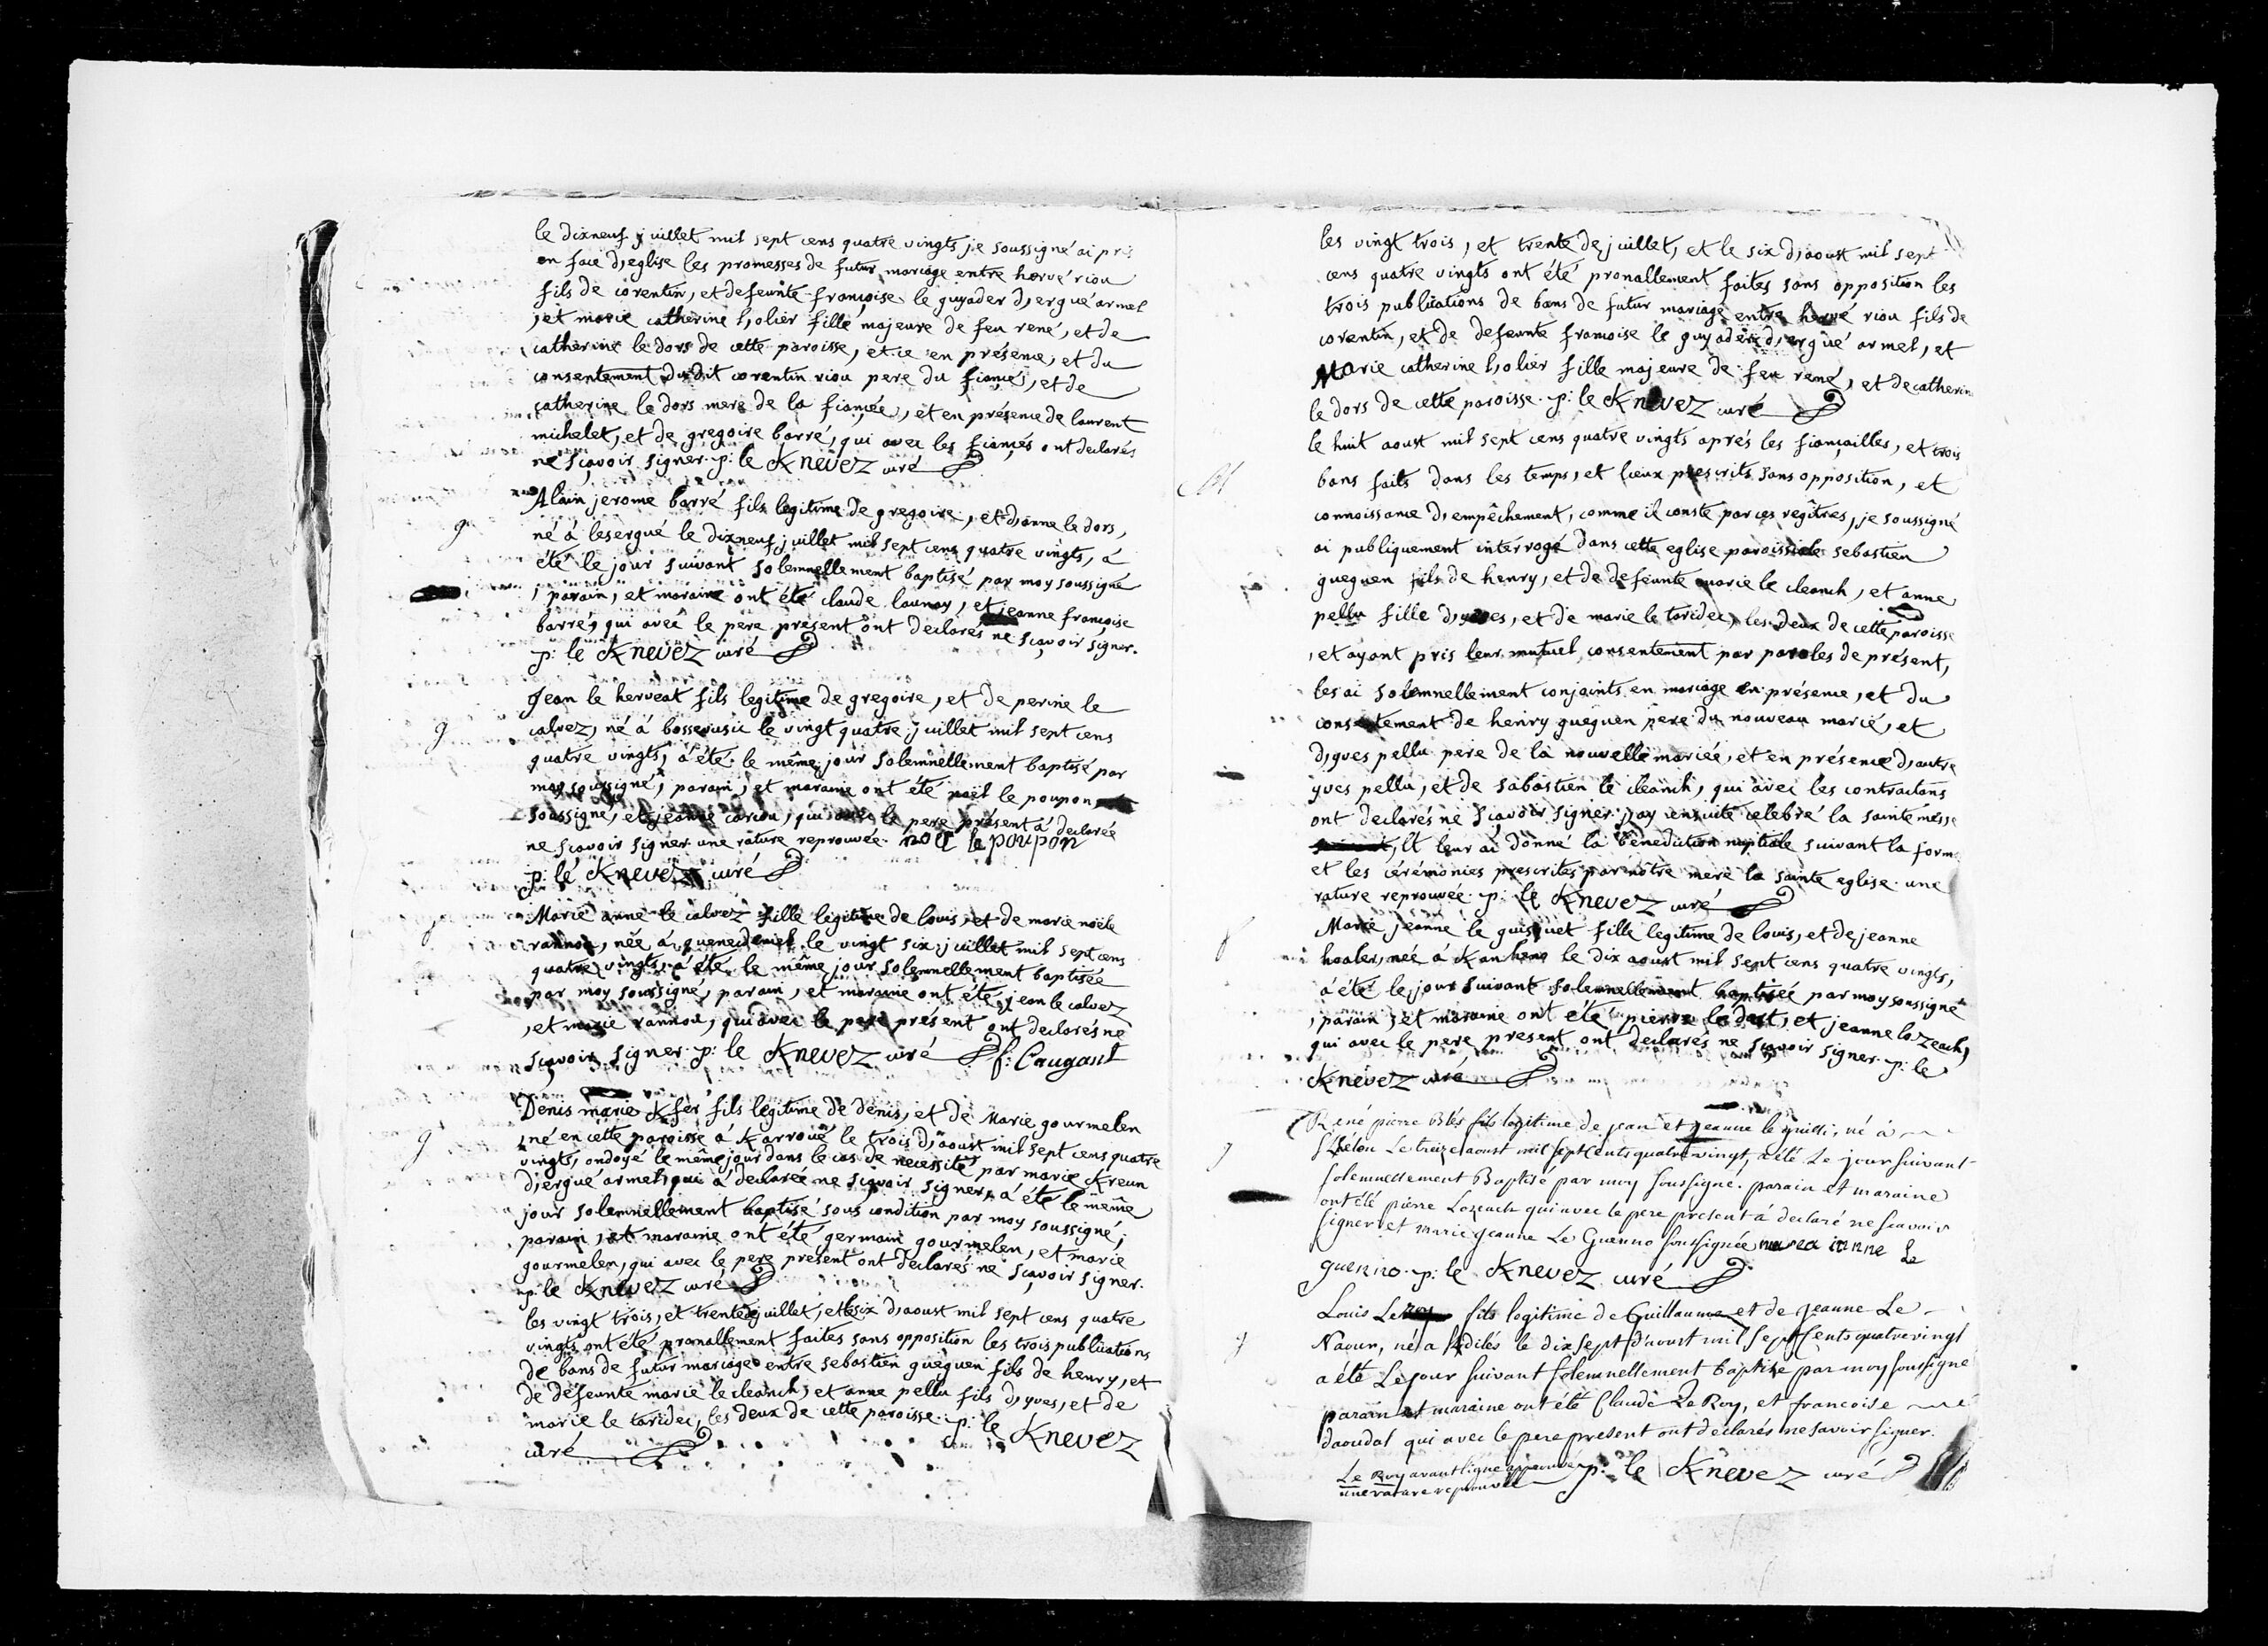 le dixneuf juillet mil sept cens quatre vingts je soussigné ai pris
en face d,eglise les promesses de futur mariage entre hervé riou
fils de corentin, et defeunte françoise le guyader d,ergué armel
, et marie catherine l,olier fille majeure de feu rené, et de
catherine le dors de cette paroisse, et ce en présence, et du
consentement dudit corentin riou pere du fiancé, et de
catherine le dors mere de la fiancée, et en présence de laurent
michelet, et de gregoire barré, qui avec les fiancés ont declarés
ne sçavoir signer. p: le Knevez curé
Alain jerome barré fils legitime de gregoire, et d,anne le dors,
g
né à lesergué le dixneuf juillet mil sept cens quatre vingts, a
été le jour suivant solemnellement baptisé par moy soussigné
, parain, et maraine ont été claude launay, et jeanne françoise
barré, qui avec le pere présent ont declarés ne sçavoir signer.
p: le Knevez curé
Jean le herveat fils legitime de gregoire, et de perine le
g
calvez, né à bosserusic le vingt quatre juillet mil sept cens
quatre vingts, a été le même jour solemnellement baptisé par
moy soussigné, parain, et maraine ont été noël le poupon
soussigné, et jeanne coriou, qui avec le pere présent a declarée
ne sçavoir signer une rature reprouvée. noel le poupon
p: le Knevez curé
Marie anne le calvez fille legitime de louis, et de marie noële
f
vannou, née à le vingt six juillet mil sept cens
quatre vingts, a été le même jour solemnellement baptisée
par moy soussigné, parain, et maraine ont été jean le calvez
, et marie vannou, qui avec le pere présent ont declarés ne
sçavoir signer. p: le Knevez curé f: Caugant
Denis marie Kfer fils legitime de denis, et de Marie gourmelen
g
, né en cette paroisse à Karroué le trois d,aoust mil sept cens quatre
vingts, ondoyé le même jour dans le cas de necessité par marie Kreun
d,ergué armel, qui a declarée ne sçavoir signer, a été le même
jour solemnellement baptisé sous condition par moy soussigné,
parain, et maraine ont été germain gourmelen, et marie
gourmelen, qui avec le pere présent ont declarés ne sçavoir signer.
p: le Knevez curé
les vingt trois, et trente juillet, et le six d,aoust mil sept cens quatre
vingts ont été pronallement faites sans opposition les trois publications
de bans de futur mariage entre sebastien gueguen fils de henry, et
de defeunte marie le cleanch, et anne pellu fils d,yves, et de
marie le taridec, les deux de cette paroisse. p: le Knevez
curé
les vingt trois, et trente de juillet, et le six d,aoust mil sept
cens quatre vingts ont été pronallement faites sans opposition les
trois publications de bans de futur mariage entre hervé riou fils de
corentin, et de defeunte françoise le guyader d,ergué armel, et
Marie catherine l,olier fille majeure de feu rené, et de catherin
le dors de cette paroisse. p: le Knevez curé
le huit aoust mil sept cens quatre vingts aprés les fiançailles, et trois
M
bans faits dans les temps, et lieux prescrits sans opposition, et
connoissance d,empêchement, comme il conste par ces regîtres, je soussigné
ai publiquement intérrogé dans cette eglise paroissiale sebastien
gueguen fils de henry, et de defeunte marie le cleanch, et anne
pellu fille d,yves, et de marie le taridec, les deux de cette paroisse
, et ayant pris leur mutuel consentement par paroles de présent,
les ai solemnellement conjoints en mariage en présence, et du
consentement de henry gueguen pere du nouveau marié, et
d,yves pellu pere de la nouvelle mariée, et en présence d,autre
yves pellu, et de sabastien le cleanch, qui avec les contractans
ont declarés ne sçavoir signer. j,ay ensuite celebré la sainte messe
et leur ai donné la bénediction nuptiale suivant la form
et les cérémonies prescrites par nôtre mere la sainte eglise. une
rature reprouvée. p: le Knevez curé
Marie jeanne le guisquet fille legitime de louis, et de jeanne
f
, née à le dix aoust mil sept cens quatre vingts,
a été le jour suivant solemnellement baptisée par moy soussigné
, parain, et maraine ont été pierre le dast, et jeanne lozeach,
qui avec le pere present ont declarés ne sçavoir signer. p: le
Knevez curé
René pierre fils legitime de jean et jeanne le, né à
g
Le treize aoust mil sept Cents quatre vingt, a été Le jour suivant
solemnellement Baptisé par moy soussigné. parain et maraine
ont été pierre Lozeach qui avec le pere present a declaré ne scavoir
signer et marie jeanne Le Guenno soussignée marea ianne Le
guenno. p: le Knevez curé
Louis Le fils legitime de Guillaume et de jeanne Le
g
Naour, né a le dix sept d'aoust mil sept Cents quatre vingt
a été Le jour suivant solemnellement Baptise par moy soussigne
parain et maraine ont été Claude Le Roy, et francoise
daoudal qui avec le pere present ont declarés ne savoir signer.
Le Roy avant ligne approuvée p: le Knevez curé
une rature reprouvée